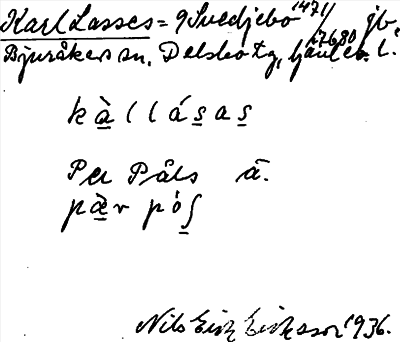 Karl Lasses = 9 Svedjebo 1471/17680 jb.
Bjuråkers sn, Delsbo tg, Gävleb. l.
k à l l á s a s
Per Påls ā.
p æ̀ r p ó ʃ
Nils Erik Eriksson 1936.